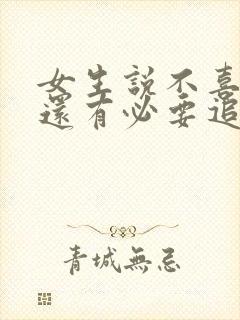 女生説不喜
還有必要追
青城無忌